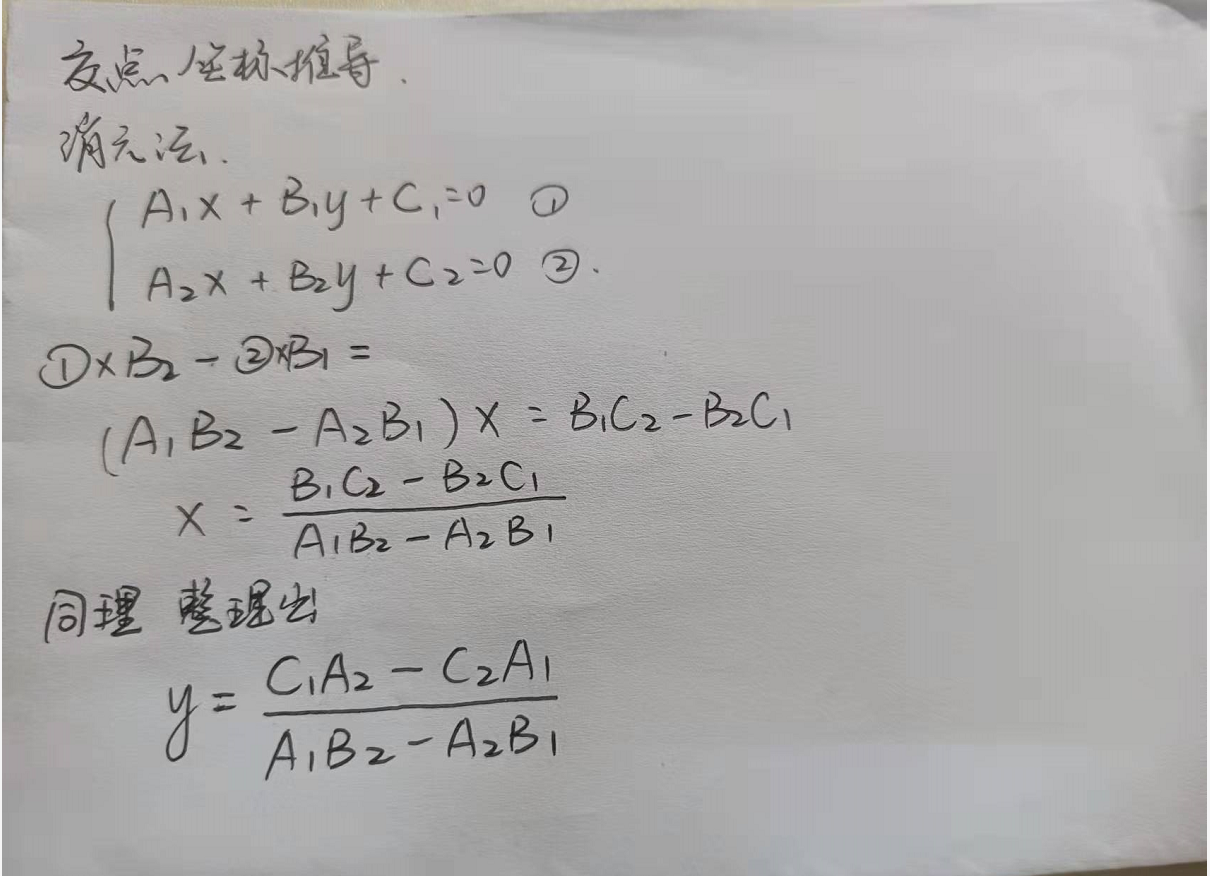 交点坐标推导.
消元法.
A₁x + B₁y + C₁=0 ①
A₂x + B₂y + C₂=0 ②.
①×B₂ - ②×B₁ =
(A₁B₂ - A₂B₁) x = B₁C₂ - B₂C₁
x = \frac{B₁C₂ - B₂C₁}{A₁B₂ - A₂B₁}
同理 整理出
y = \frac{C₁A₂ - C₂A₁}{A₁B₂ - A₂B₁}